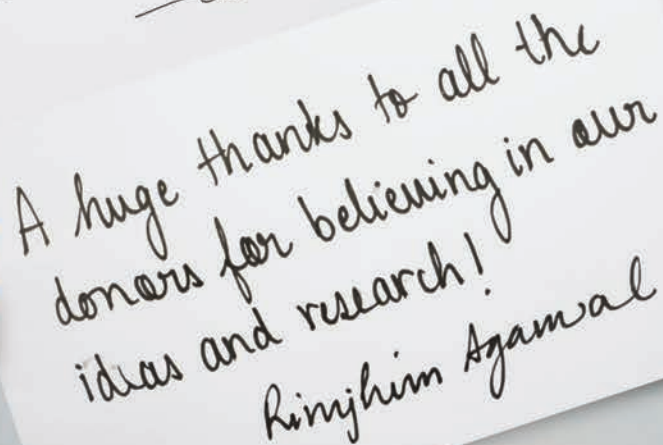 A huge thanks to all the
donors for believing in our
ideas and research!
Rimjhim Agarwal